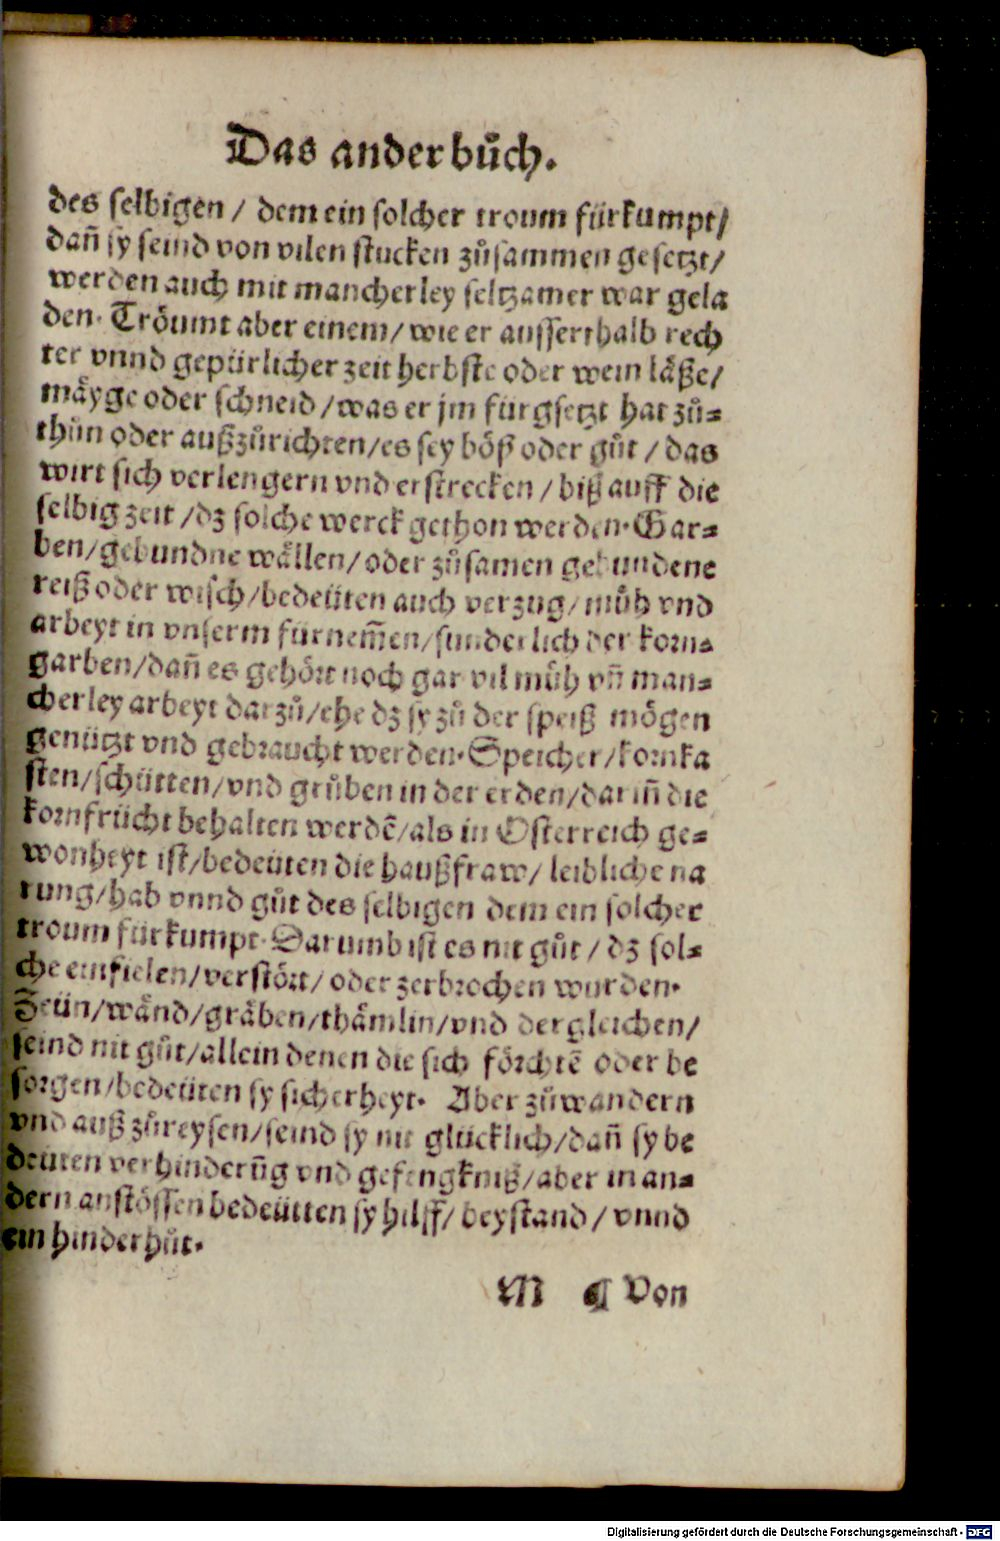 Das ander bůch.
des selbigen / dem ein solcher troum fürkumpt /
dañ sy seind von vilen stucken zůsammen gesetzt /
werden auch mit mancherley seltzamer war gela
den. Tröumt aber einem / wie er ausserthalb rech
ter vnnd gepürlicher zeit herbste oder wein läße /
mäyge oder schneid / was er jm fürgsetzt hat zů-
thůn oder außzůrichten / es sey böß oder gůt / das
wirt sich verlengern vnd erstrecken / biß auff die
selbig zeit / dz solche werck gethon werden. Gar-
ben / gebundne wällen / oder zůsamen gebundene
reiß oder wisch / bedeüten auch verzug / můh vnd
arbeyt in vnserm fürnem̃en / sunderlich der korn-
garben / dañ es gehört noch gar vil můh vñ man-
cherley arbeyt darzů / ehe dz sy zů der speiß mögen
genützt vnd gebraucht werden. Speicher / kornka
sten / schütten / vnd grůben in der erden / dar iñ die
kornfrücht behalten werdẽ / als in Osterreich ge-
wonheyt ist / bedeüten die haußfraw / leibliche na
rung / hab vnnd gůt des selbigen dem ein solcher
troum fürkumpt. Darumb ist es nit gůt / dz sol-
che einfielen / verstört / oder zerbrochen wurden.
Zeün / wänd / gräben / thämlin / vnd dergleichen /
seind nit gůt / allein denen die sich förchtẽ oder be
sorgen / bedeüten sy sicherheyt. Aber zůwandern
vnd auß zůreysen / seind sy nit glücklich / dañ sy be
deüten verhinderũg vnd gefengkniß / aber in an-
dern anstössen bedeütten sy hilff / beystand / vnnd
ein hinderhůt.
M ¶ Von
Digitalisierung gefördert durch die Deutsche Forschungsgemeinschaft - DFG